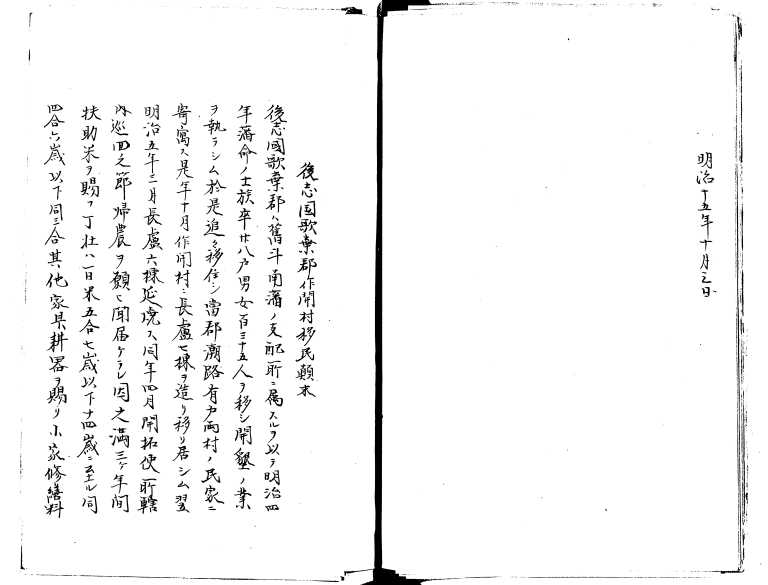 明治十五年十月之日
後志国歌棄郡作開村移民顛末
後志國歌棄郡ハ舊斗南藩ノ支配所ニ属スルヲ以テ明治四
年藩命ノ士族卒廿八戸男女百三十五人ヲ移シ開墾ノ業
ヲ執ラシム於是追々移住シ當郡潮路有戸両村ノ民家ニ
寄寓ス是年十月作開村ニ長盧七棟ヲ造リ移リ居シム翌
明治五年三月長盧六棟延焼ス同年四月開拓使所轄
内巡回之節帰農ヲ願ヒ聞届ケラレ因之満三ヶ年間
扶助米ヲ賜フ丁壮ハ一日米五合七歳以下十四歳ニ至ル同
四合六歳以下同三合其他家具耕器ヲ賜リ小家修繕料